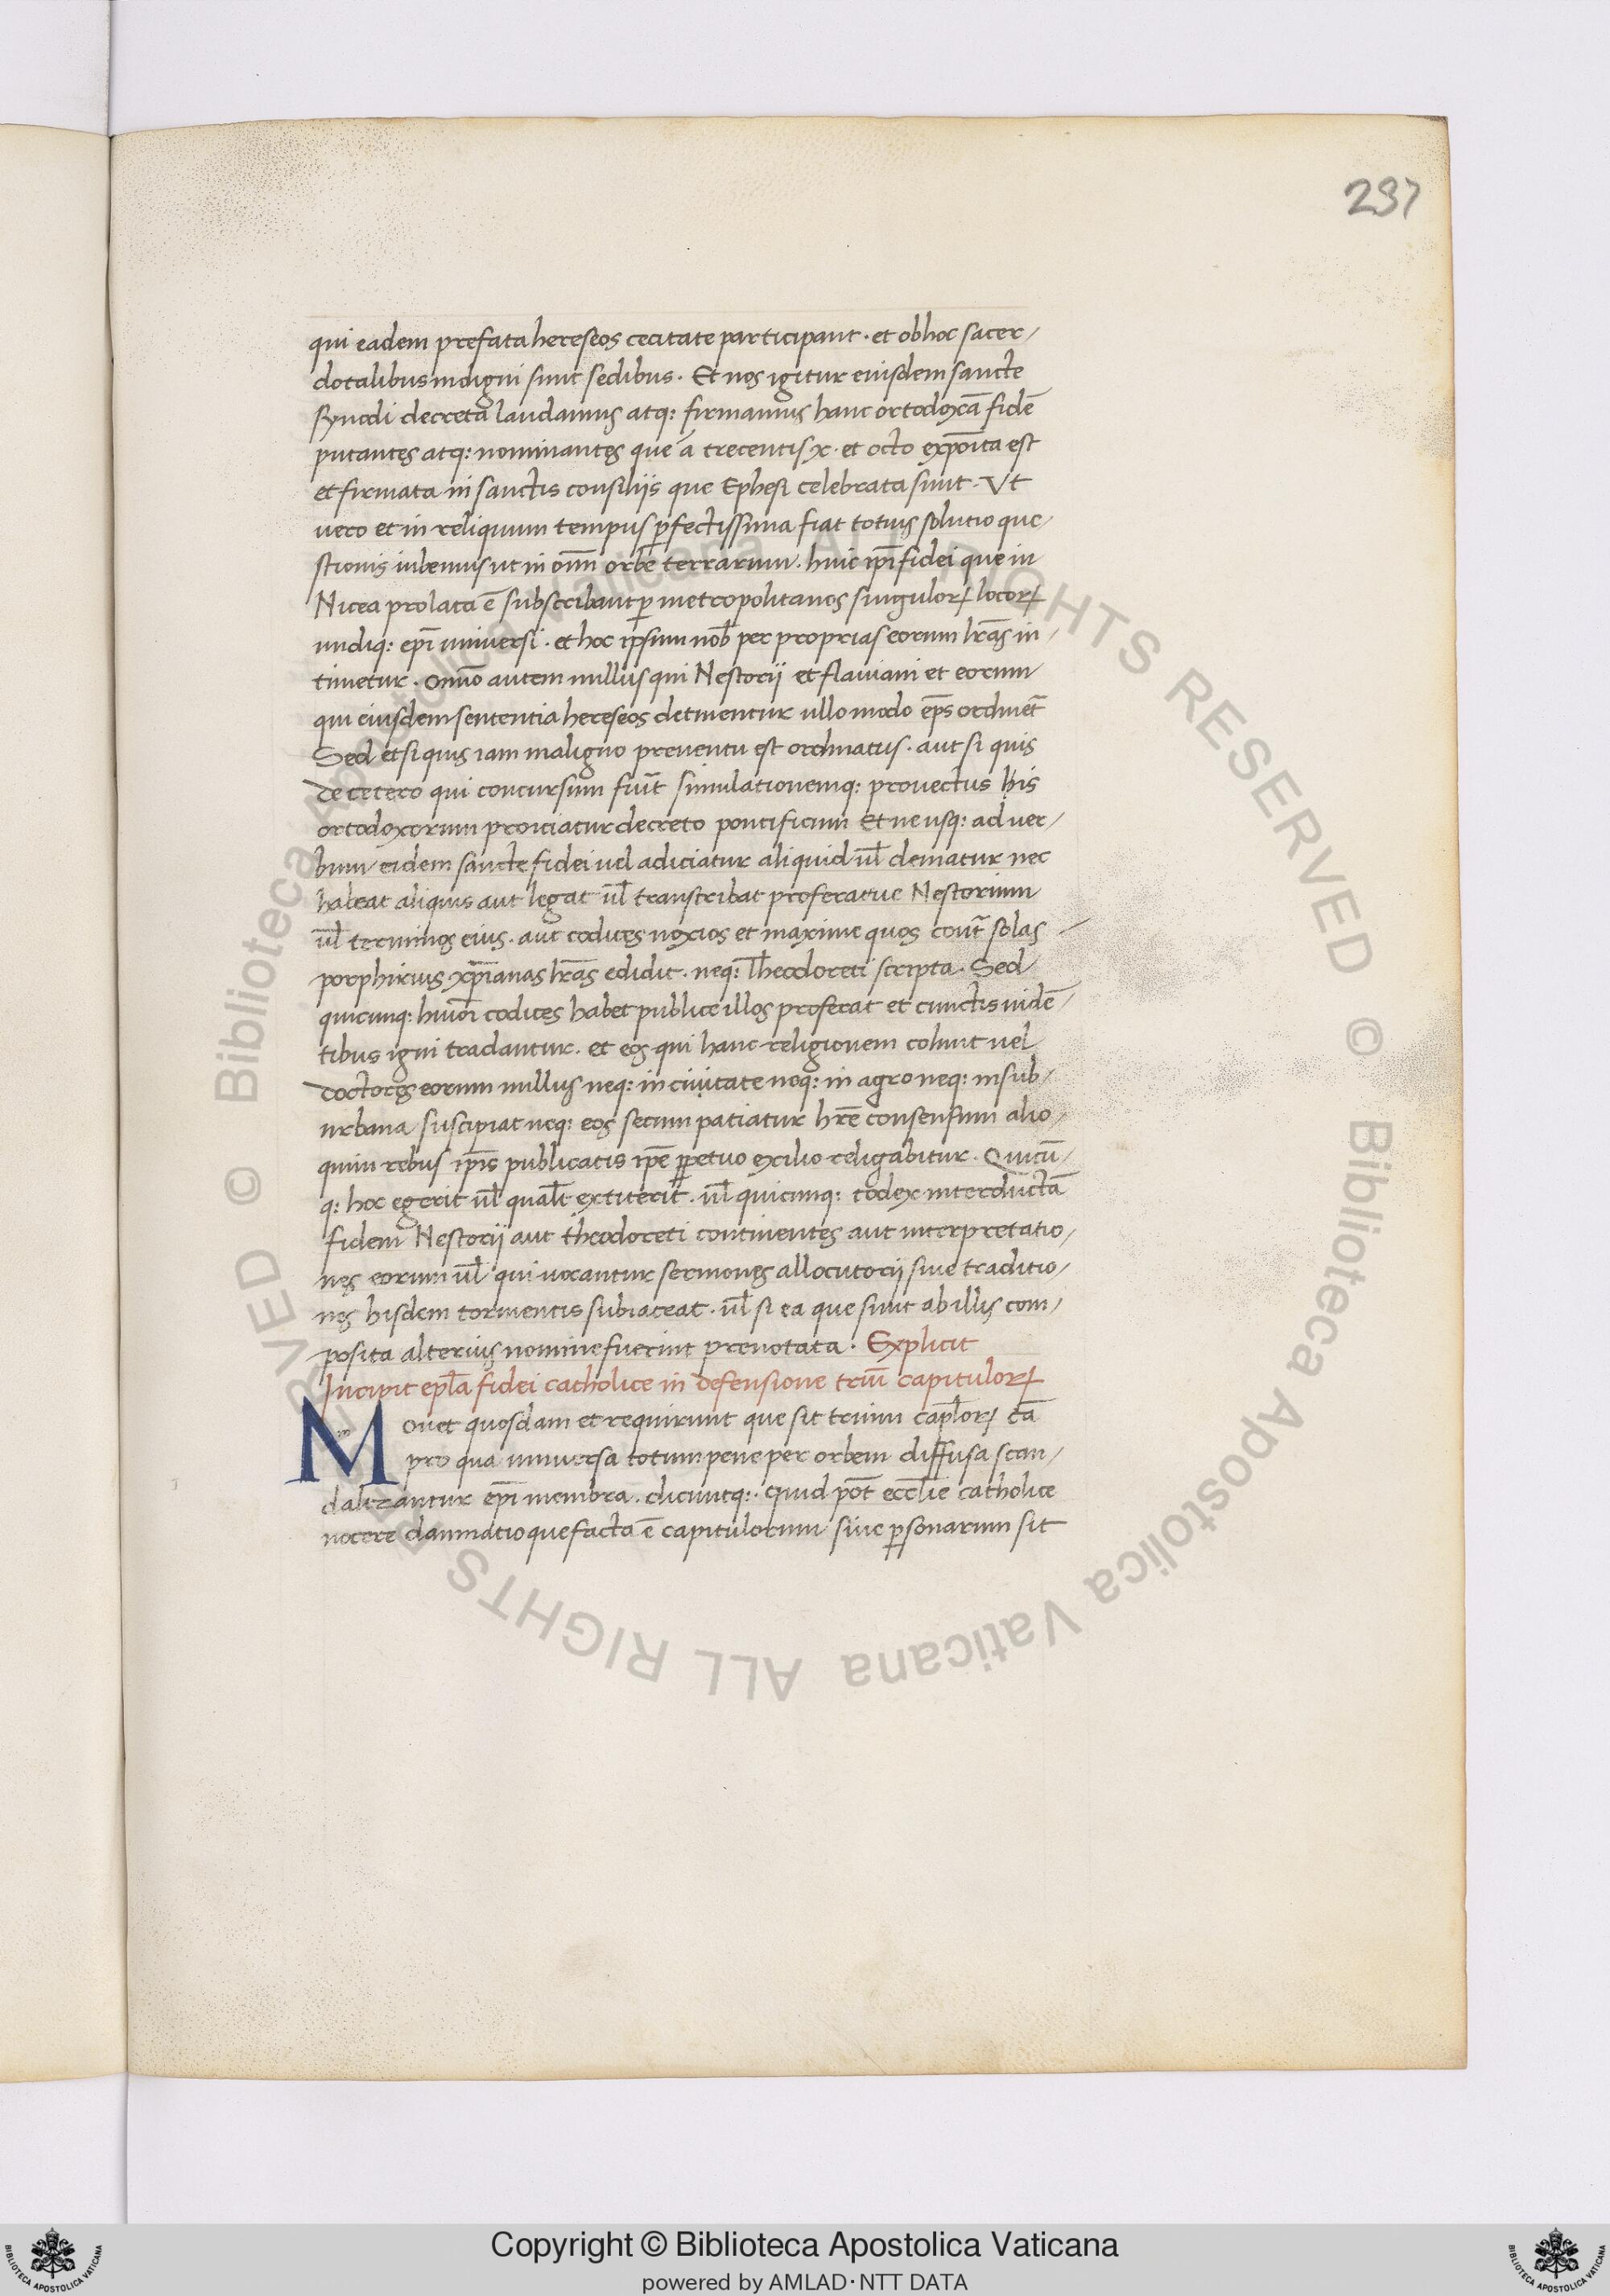 237
qui eadem prefata hereseos cecitate participant · et ob hoc sacer-
dotalibus indigni sunt sedibus · Et nos igitur eiusdem sancte
synodi decreta laudamus atq: firmamus hanc ortodoxā fidē
putantes atq: nominantes que ā trecentis x · et octo exp̄oita est
et firmata in sanctis consiliis que Ephesi celebrata sunt · Vt
uero et in reliquum tempus p̱fectissima fiat totius solutio que-
stionis iubemus ut in om̄i orbe terrarum · huic ip̄i fidei que in
Nicea prolata ē subscribant p̱ metropolitanos singuloꝝ locoꝝ
undiq: ep̄i uniuersi · et hoc ipsum nob̄ per proprias eorum lr̄as in-
timetur · Om̄o autem nullus qui Nestorii et flauiani et eorum
qui eiusdem sententia hereseos detinentur ullo modo ep̄s ordinet̄
Sed et si quis iam maligno preuentu est ordinatus · aut si quis
de cetero qui concursum fiūt simulationemq: prouectus his
ortodoxorum proiciatur decreto pontificum Et ne usq: ad uer-
bum eidem sancte fidei uel adiciatur aliquid ul̄ dematur nec
habeat aliquis aut legat ul̄ transcribat proferatue Nestorium
ul̄ terminos eius · aut codices noxios et maxime quos cont̄ solas
porphirius xp̄ianas lr̄as edidit · neq: Theodoreti scripta · Sed
quicunq: huiōi codices habet publice illos proferat et cunctis uidē-
tibus igni tradantur · et eos qui hanc religionem colunt uel
doctores eorum nullus neq: in ciuitate neq: in agro neq: in sub-
urbana suscipiat neq: eos secum patiatur hr̄e consensum alio-
quin rebus ip̄is publicatis ip̄e p̱petuo exilio religabitur · Quicū-
q: hoc egerit ul̄ qual̄t extiterit · ul̄ quicunq: codex interdictā
fidem Nestorii aut theodoreti continentes aut interpretatio-
nes eorum ul̄ qui uocantur sermones allocutorii siue traditio-
nes hisdem tormentis subiaceat · ul̄ si ea que sunt ab illis com-
posita alterius nomine fuerint prenotata · Explicit
Incipit epl̄a fidei catholice in defensione triū capituloꝝ
Mouet quosdam et requirunt que sit trium capl̄oꝝ cā
pro qua uniuersa totum pene per orbem diffusa scan-
dalizantur ep̄i membra · dicuntq: · Quid pōt eccl̄ie catholice
nocere damnatio que facta ē capitulorum siue p̱sonarum sit
© Biblioteca Apostolica Vaticana ALL RIGHTS RESERVED
© Biblioteca Apostolica Vaticana ALL RIGHTS RESERVED
Copyright © Biblioteca Apostolica Vaticana
powered by AMLAD·NTT DATA
BIBLIOTECA APOSTOLICA VATICANA
BIBLIOTECA APOSTOLICA VATICANA